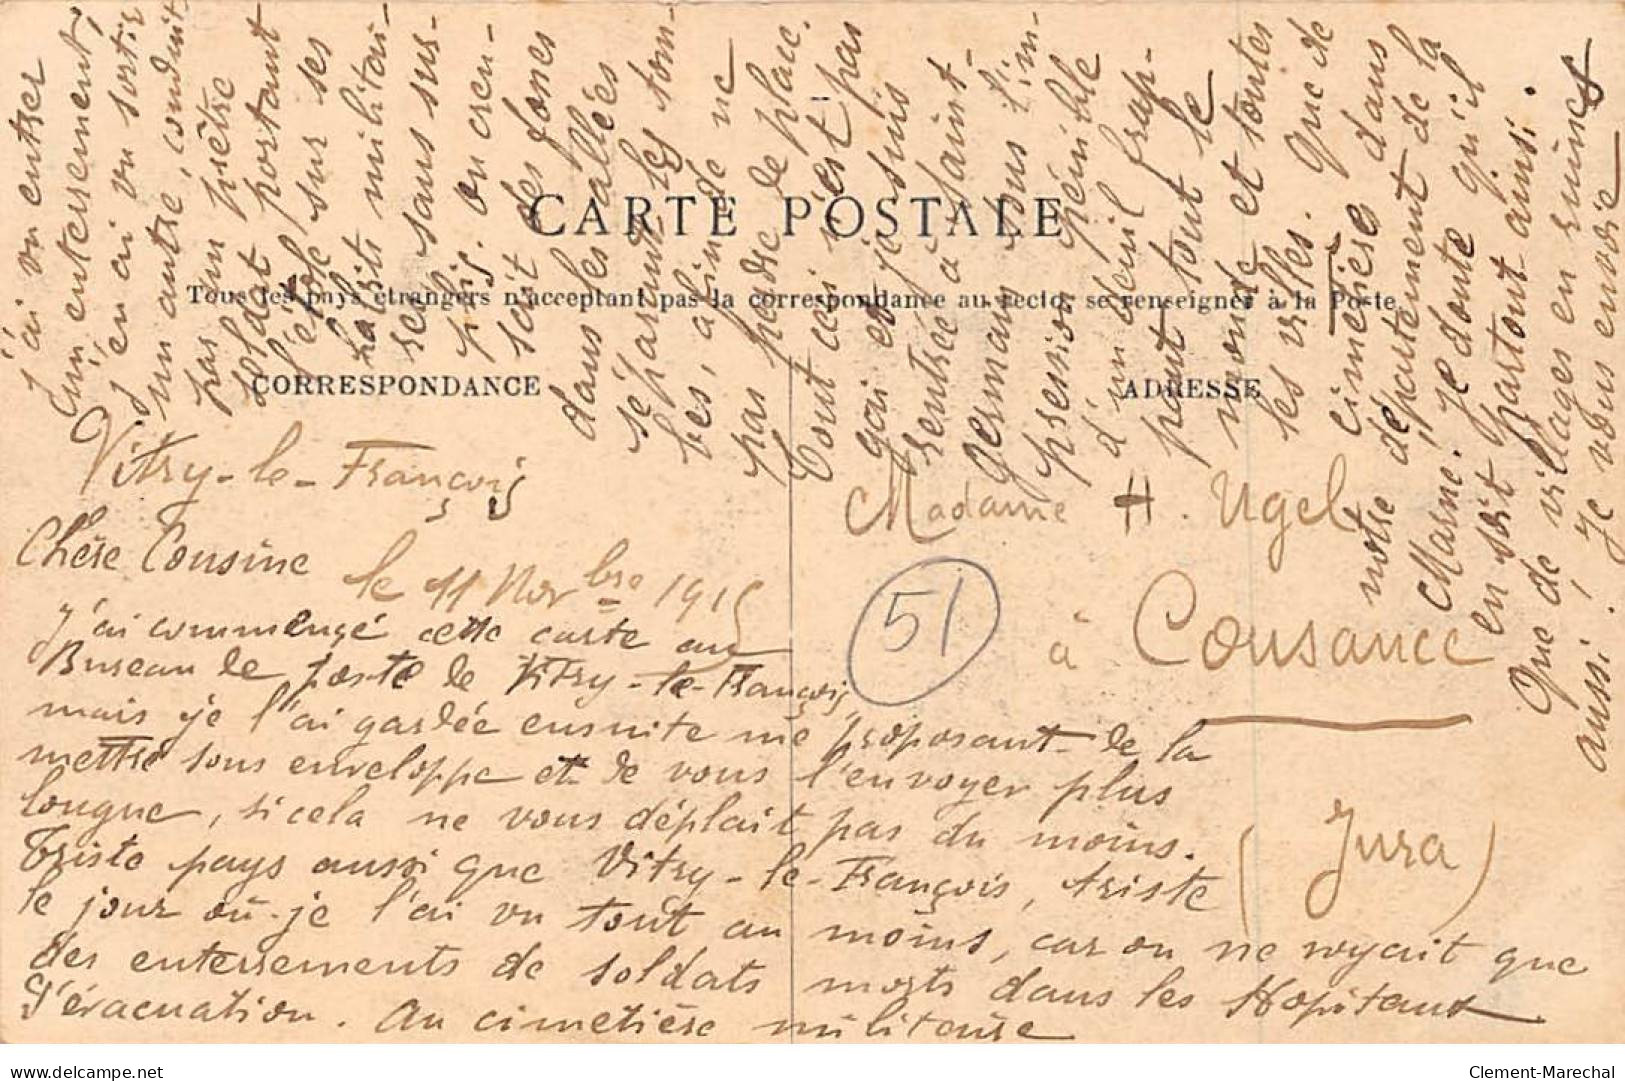 CARTE POSTALE
Tous les pays étrangers n'acceptant pas la correspondance au recto, se renseigner à la Poste
CORRESPONDANCE
ADRESSE
Vitry-le-François
le 11 Novbre 1915
Chère Cousine
J'ai commencé cette carte au
Bureau de poste de Vitry-le-François,
mais je l'ai gardée ensuite me proposant de la
mettre sous enveloppe et de vous l'envoyer plus
longue, si cela ne vous déplait pas du moins.
Triste pays aussi que Vitry-le-François, triste
le jour où je l'ai vu tout au moins, car on ne voyait que
des enterrements de soldats morts dans les Hopitaux
d'évacuation. Au cimetière militaire
j'ai vu entrer
un enterrement,
j'en ai vu sortir
un autre, conduit
par un prêtre
soldat portant
l'étole sur ses
habits militai-
res sans sur-
plis. On creu-
sait des fosses
dans les allées
séparant les tom-
bes, afin de ne
pas perdre de place.
Tout ceci n'est pas
gai et je suis
rentrée à Saint-
Germain sous l'im-
pression pénible
d'un deuil frap-
pant tout le
monde et toutes
les villes. Que de
cimetières dans
notre département de la
Marne. Je doute qu'il
en soit partout ainsi.
Que de villages en ruines
aussi! Je vous envoie
Madame H. Ugel
à Cousance
(Jura)
51
Clement-Marechal